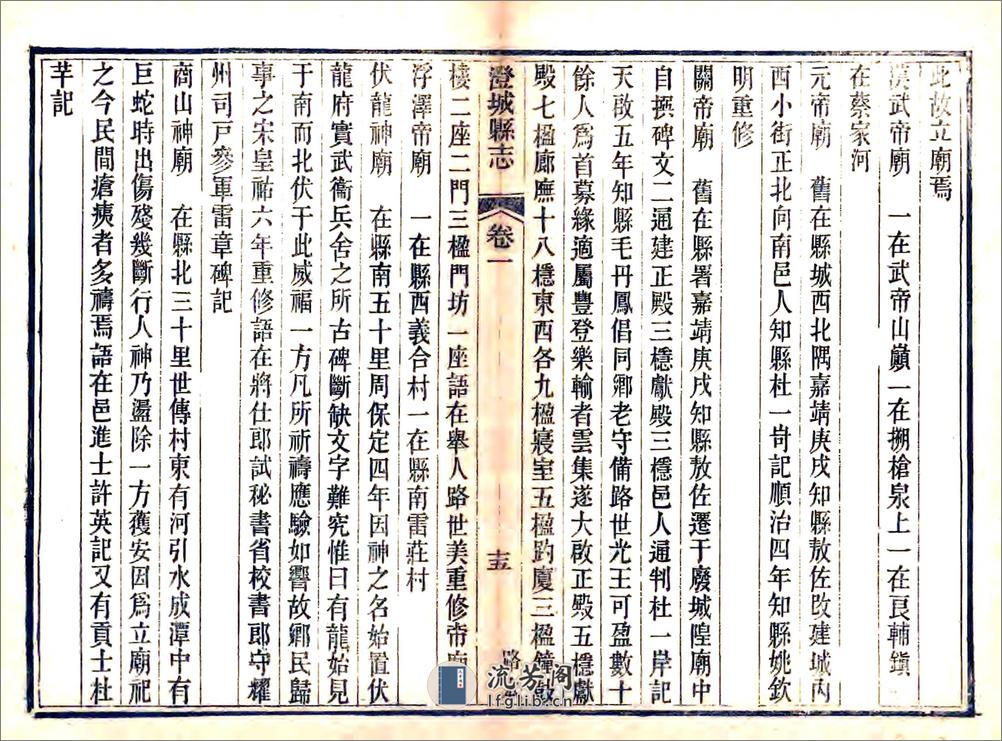 此故立廟焉
漢武帝廟　一在武帝山巔一在搠槍泉上一在良輔鎮一
在蔡家河
元帝廟　舊在縣城西北隅嘉靖庚戌知縣敖佐改建城內
西小街正北向南邑人知縣杜一岢記順治四年知縣姚欽
明重修
關帝廟　舊在縣署嘉靖庚戌知縣敖佐遷于廢城隍廟中
自撰碑文二通建正殿三穩獻殿三穩邑人通判杜一岸記
天啟五年知縣毛丹鳳倡同鄉老守備路世光王可盈數十
餘人爲首募緣適屬豐登樂輸者雲集遂大啟正殿五穩獻
殿七楹廊廡十八穩東西各九楹寢室五楹趵廈三楹鐘鼓
澄城縣志　卷一　十五
樓二座二門三楹門坊一座語在舉人路世美重修帝廟
浮澤帝廟　一在縣西義合村一在縣南雷莊村
伏龍神廟　在縣南五十里周保定四年因神之名始置伏
龍府實武衞兵舍之所古碑斷缺文字難究惟曰有龍始見
于南而北伏于此威福一方凡所祈禱應驗如響故鄉民歸
事之宋皇祐六年重修語在將仕郎試秘書省校書郎守耀
州司戸參軍雷章碑記
商山神廟　在縣北三十里世傳村東有河引水成潭中有
巨蛇時出傷殘幾斷行人神乃盪除一方獲安因爲立廟祀
之今民間瘡痍者多禱焉語在邑進士許英記又有貢士杜
芊記
流芳閣
lfglib.cn